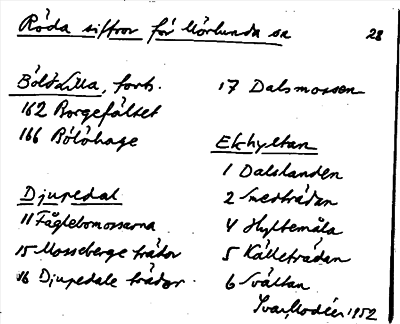 Röda siffror för Mörlunda sn 28
Böltsilla, forts.
162 Borgefältet
166 Bölöhage
Djupedal
11 Fåglebomossarna
15 Mosseberge trätor
16 Djupedale trädor
17 Dalsmossen
Ekhyltan
1 Dalslanden
2 Smedträdan
4 Hyltemåla
5 Källeträdan
6 Svältan
Ivar Modéer 1952